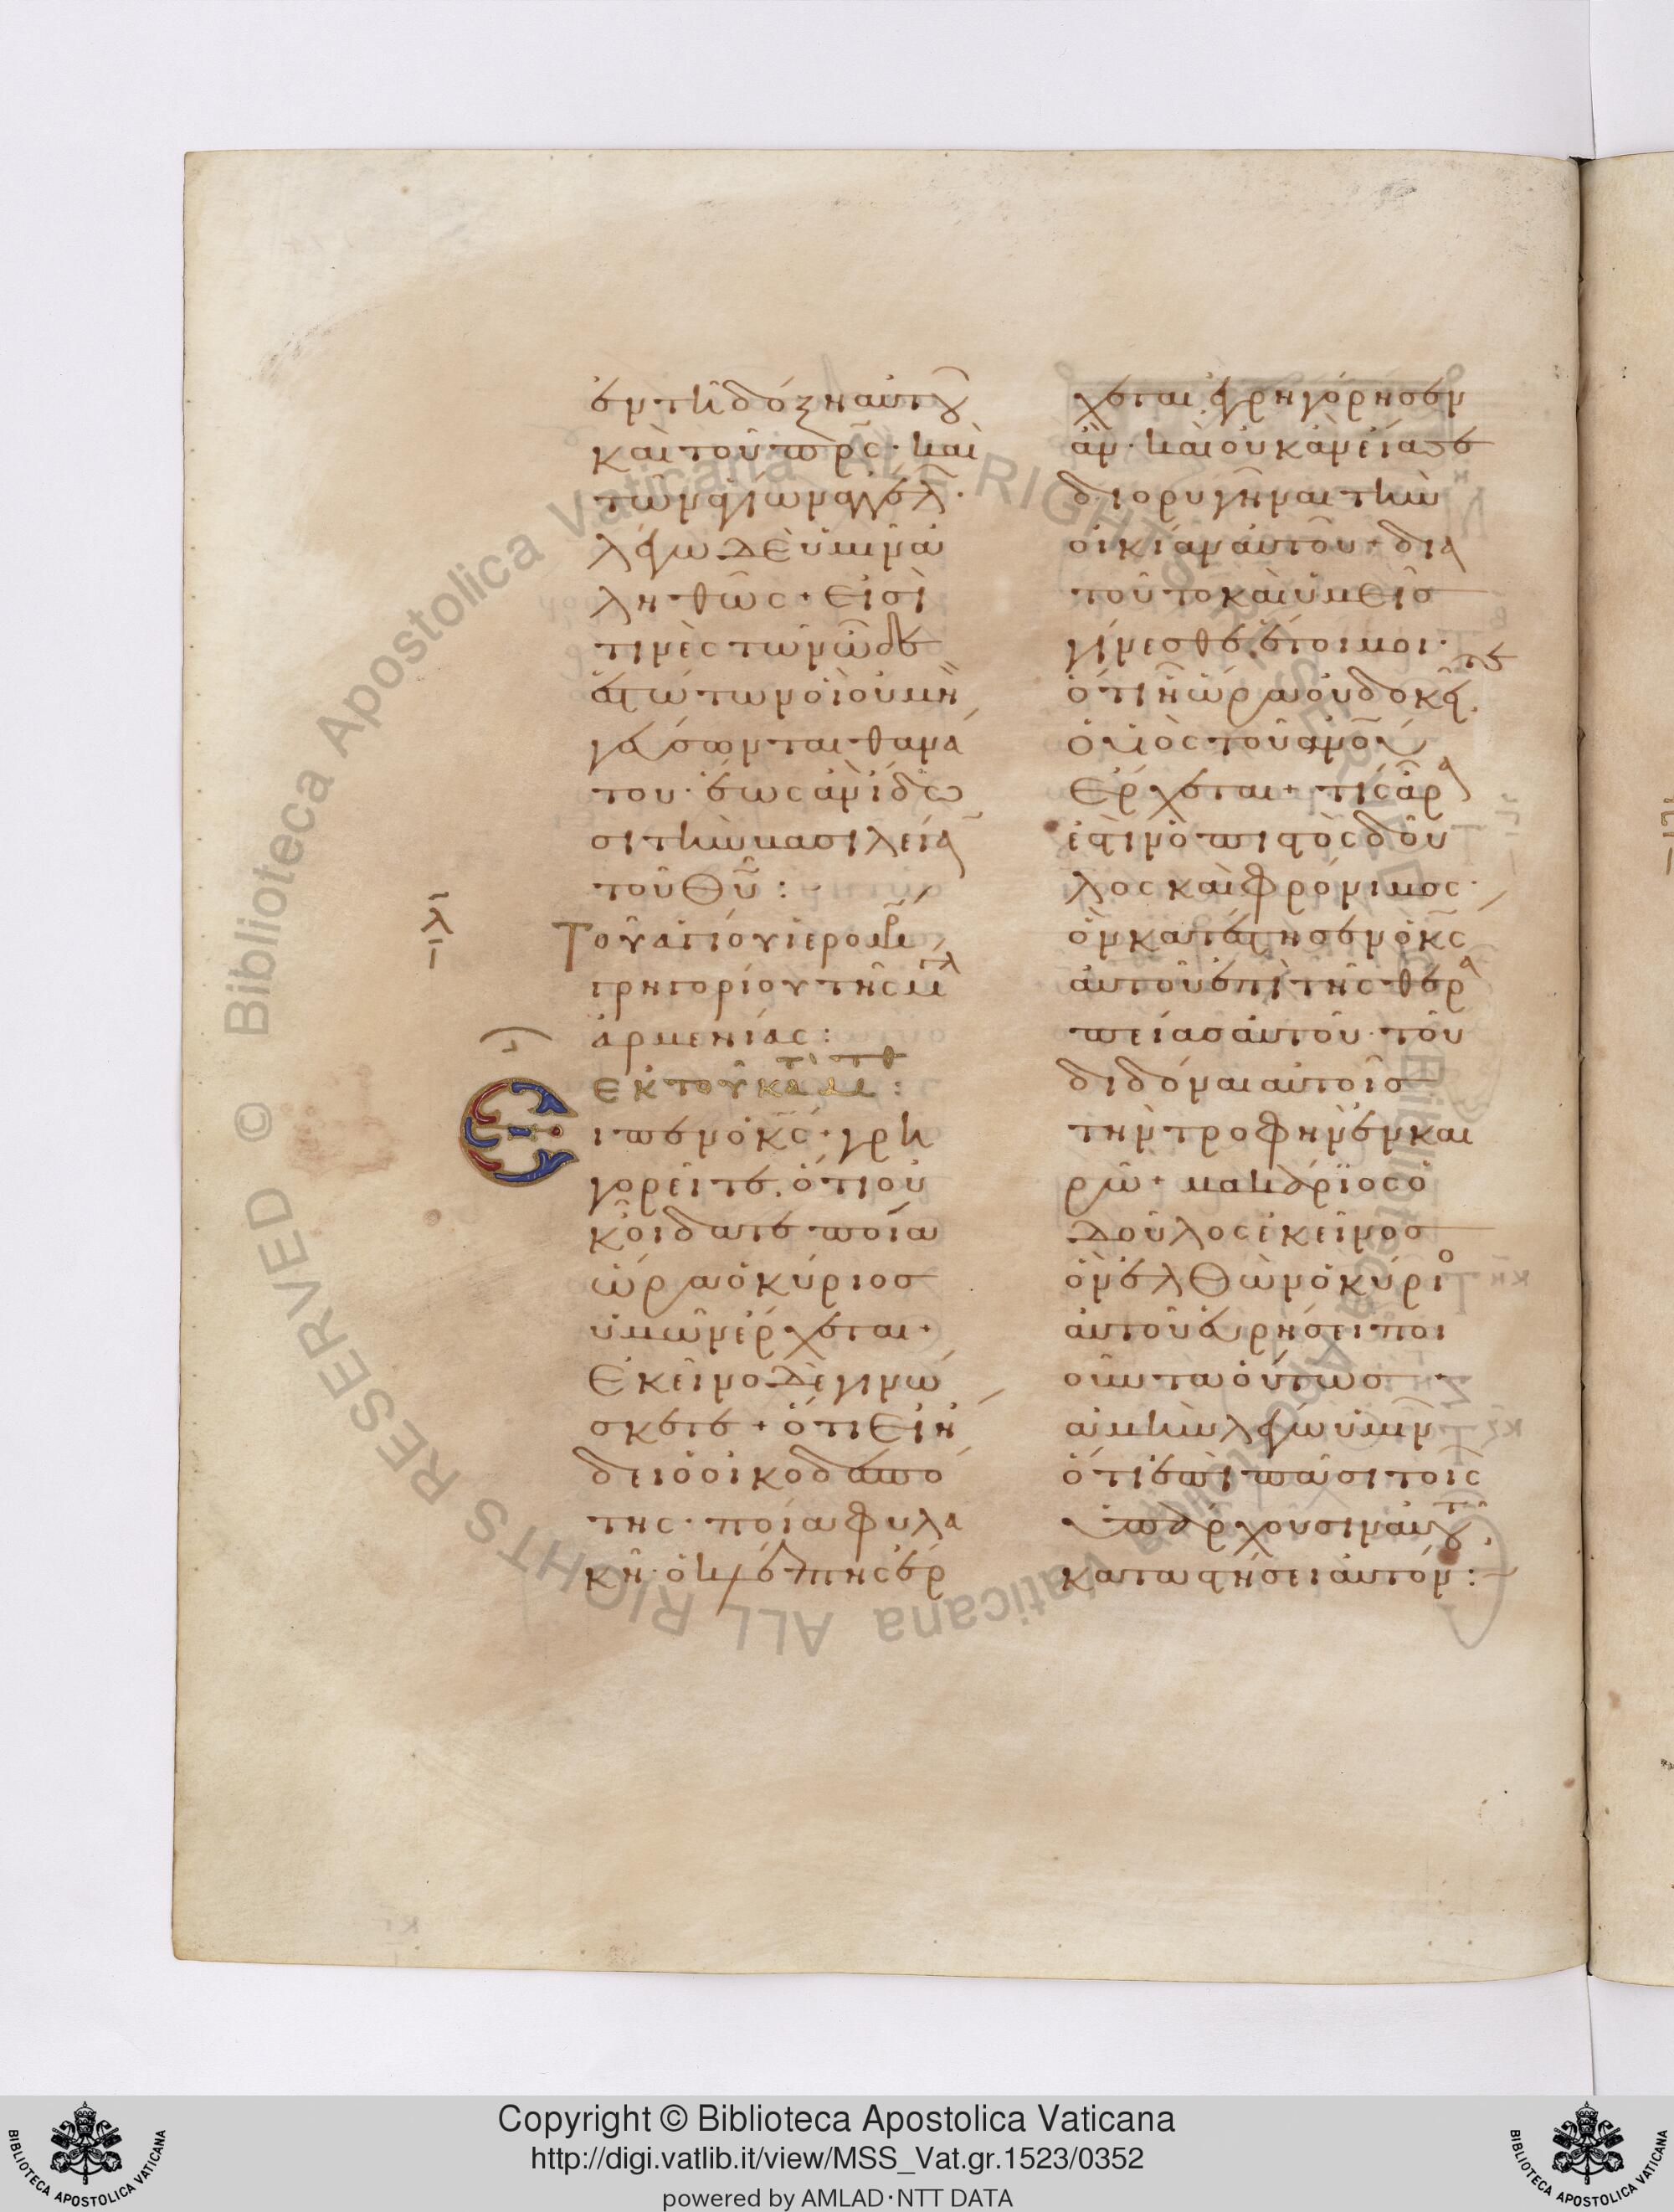 ἐν τῇ δόξη αὐτοῦ
καὶ τοῦ πρ̅ς· καὶ
τῶν ἁγίων ἀγγέλ·
λέγω δὲ ὑμῖν ἀ
ληθῶς + εἰσὶ
τινὲς τῶν ὧδε
ἑστώτων οἳ οὐ μὴ
γεύσωνται θανά
του· ἕως ἂν ἴδω
σι τὴν βασιλεία
τοῦ Θυ̅:
λ
Τοῦ ἁγίου ἱερομ
γρηγορίου τῆς μ
ἀρμενίας:
ἐκ τοῦ κατὰ μτθ:
Εἶπεν ὁ κς̅· γρη
γορεῖτε, ὅτι οὐ
κ οἴδατε ποία
ὥρα ὁ κύριος
ὑμῶν ἔρχεται +
Ἐκεῖνο δὲ γινώ
σκετε + ὅτι εἰ ἤ
δει ὁ οἰκοδεσπό
της· ποία φυλα
κῆ ὁ κλέπτης ἔρ
χεται, ἐγρηγόρησεν
ἄν· καὶ οὐκ ἂν εἴασε
διορυγῆναι τὴν
οἰκίαν αὐτοῦ + δια
τοῦτο καὶ ὑμεῖς
γίνεσθε ἕτοιμοι·
ὅτι ἧ ὥρα οὐ δοκεῖτε
ὁ υἱὸς τοῦ ἀνου̅
ἔρχεται + τίς ἄρα
ἐστὶν ὁ πιστὸς δοῦ
λος καὶ φρόνιμος·
ὃν κατέστησεν ὁ κς̅
αὐτοῦ ἐπὶ τῆς θερα
πείας αὐτοῦ· τοῦ
διδόναι αὐτοῖς
τὴν τροφὴν ἐν και
ρῶ + μακάριος ὁ
δοῦλος ἐκεῖνος
ὃν ἐλθὼν ὁ κύριο
αὐτοῦ εὑρήσει ποι
οῦντα οὕτως +
ἀμὴν λέγω ὑμῖν
ὅτι ἐπὶ πᾶσι τοῖς
ὑπάρχουσιν αὐτοῦ
καταστήσει αὐτόν:
Copyright © Biblioteca Apostolica Vaticana
http://digi.vatlib.it/view/MSS_Vat.gr.1523/0352
powered by AMLAD·NTT DATA
BIBLIOTECA APOSTOLICA VATICANA
BIBLIOTECA APOSTOLICA VATICANA
© Biblioteca Apostolica Vaticana ALL RIGHTS RESERVED